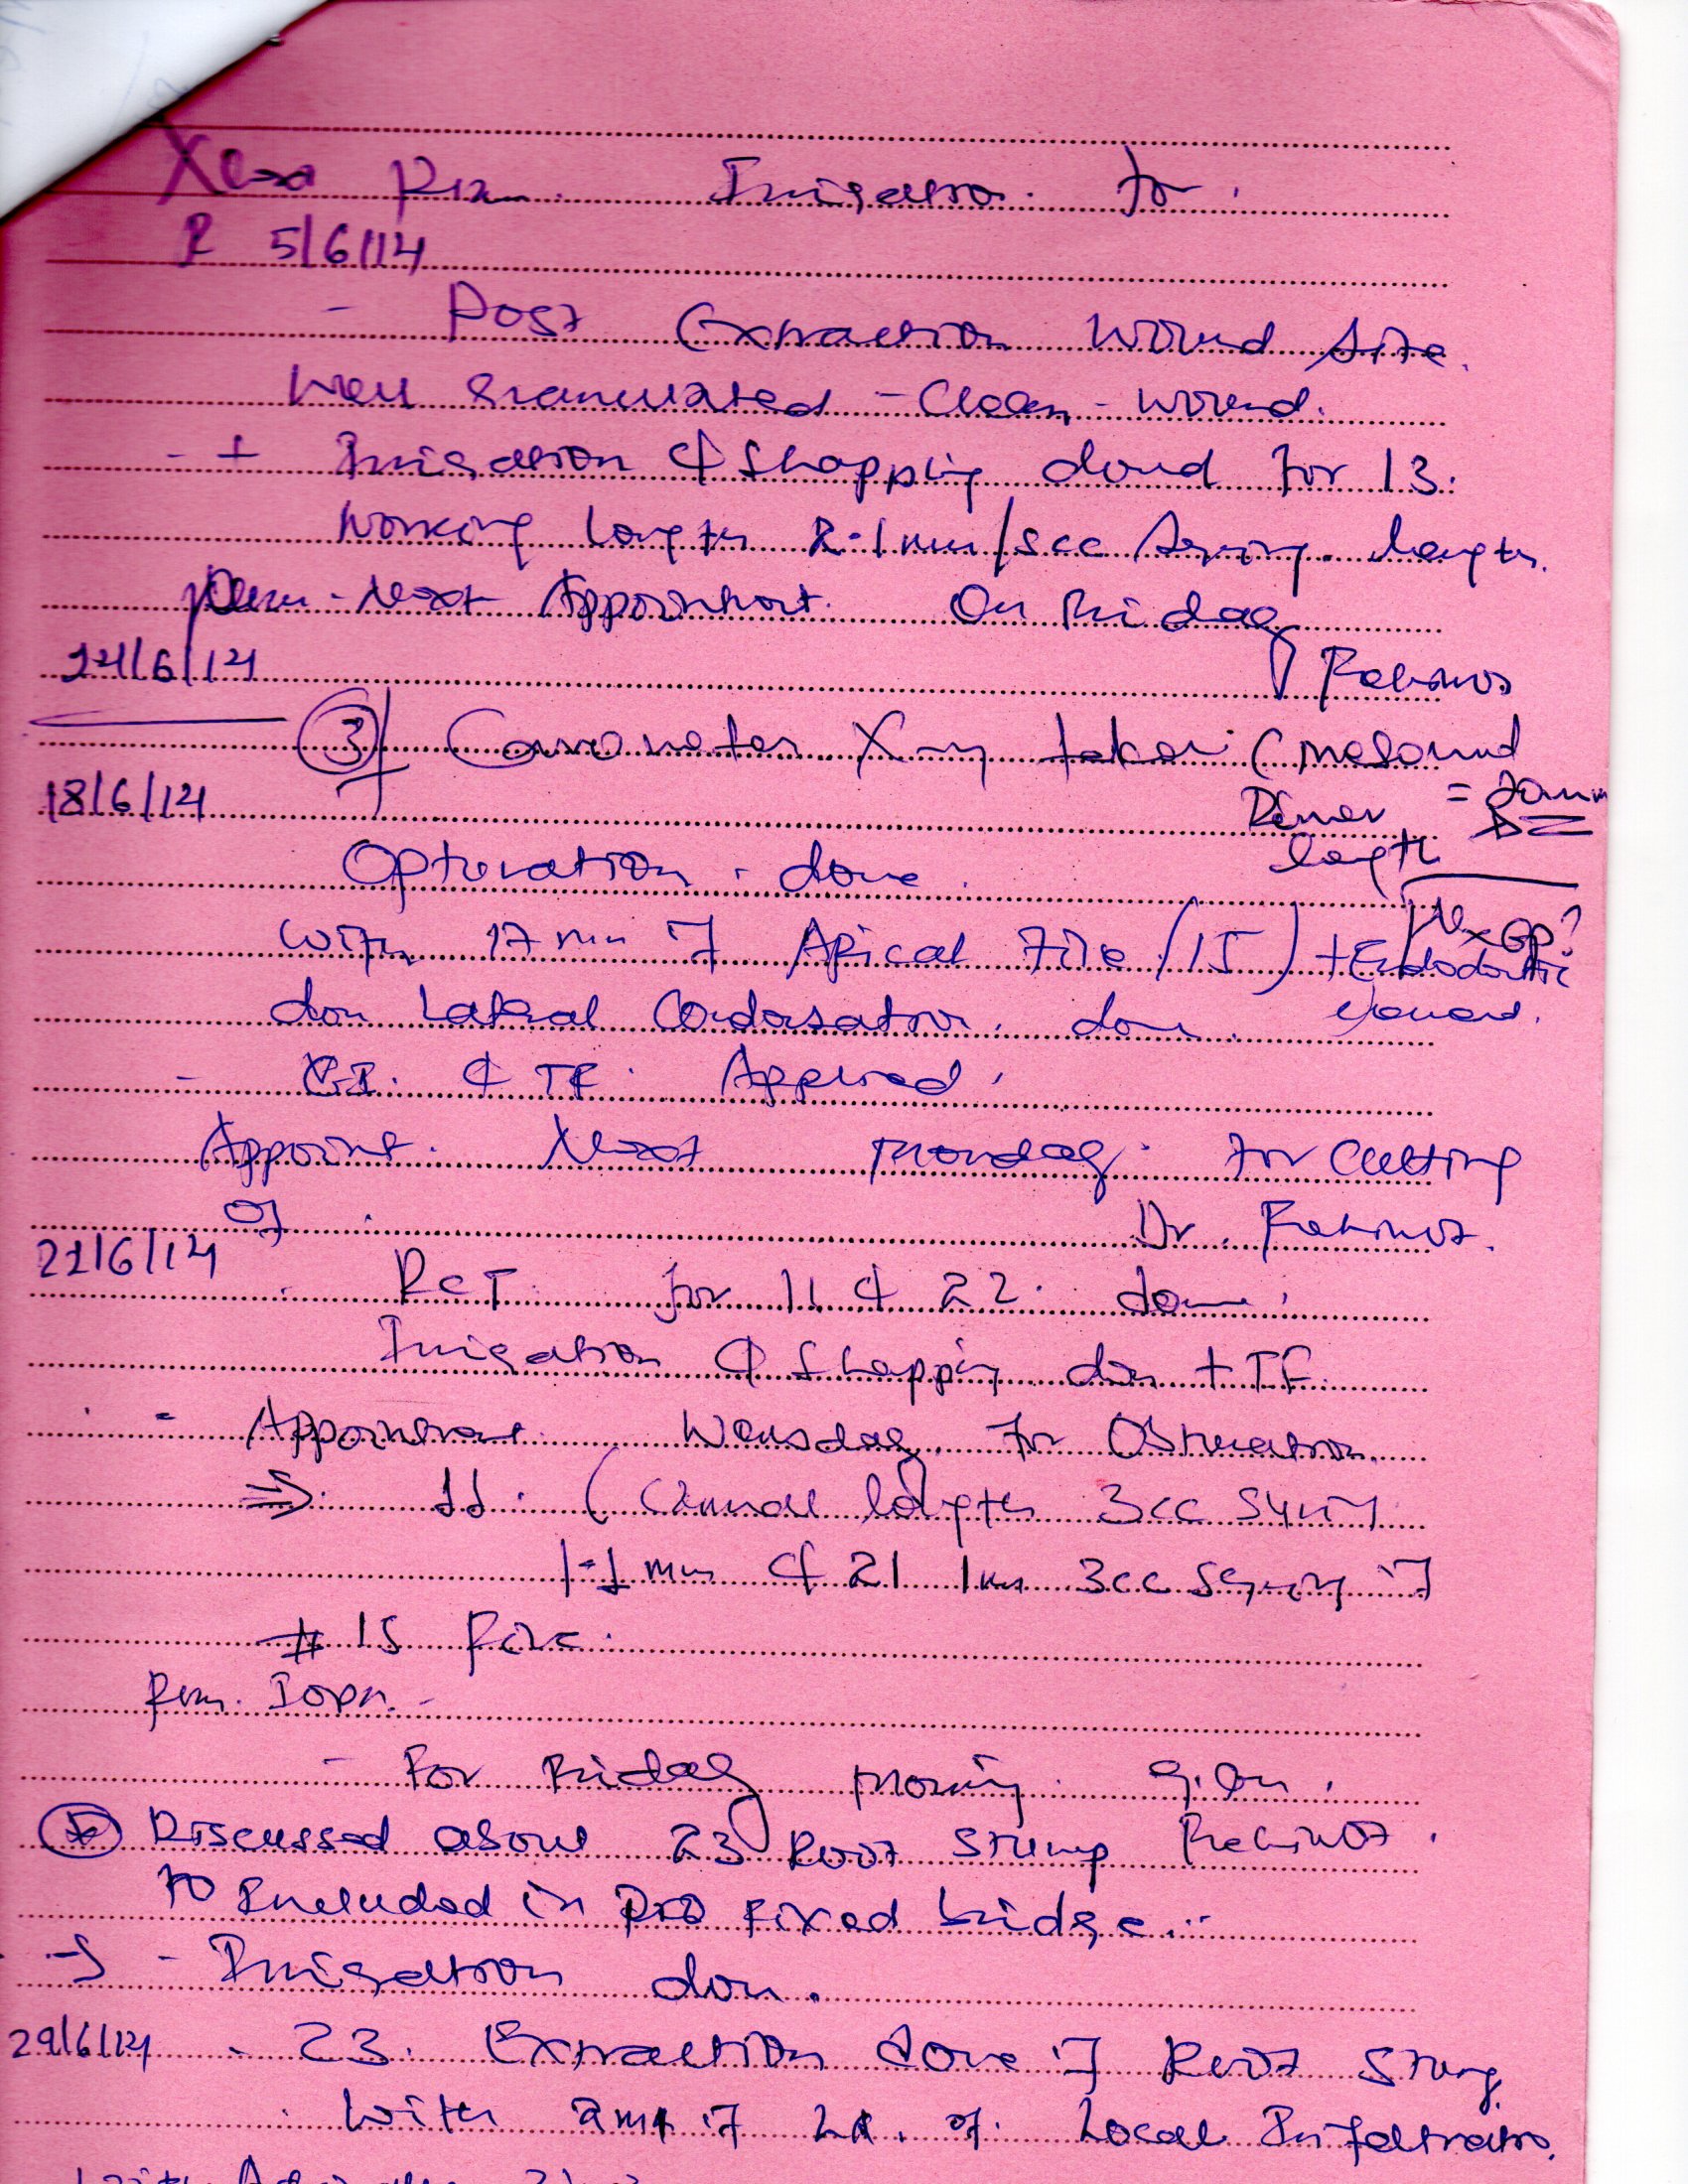 Irrigation for
5/6/14
- Post Extraction Wound Site.
Well granulated - Clean - Wound.
- + Irrigation & Shapping dond for 13.
Working length 2.1mm/5cc length.
Next Appointment. On Friday
14/6/14
3 X ray taken (measured
18/6/14 length = 20mm
Opturation . done .
with 17mm of Apical File (15) + Endodontic
don Lateral Condensation. done.
- GI. & TF. Applied.
Appoint. Next Monday. for Cutting
of . Dr.
21/6/14
. RCT for 11 & 22. done.
Irrigation & Shapping don + TF.
- Appointment Wensday. for Obturation.
⇒ 11. ( Cannal length 3cc Syring
1.1mm & 21 1mm 3cc Syring of
# 15 File.
- For Friday morning.
Discussed about 23 Root Stump
to Included in Fixed bridge..
→ - Irrigation don.
29/6/14 - 23. Extraction done of Root Stump
with 2ml of LA. of Local Infiltration.
with